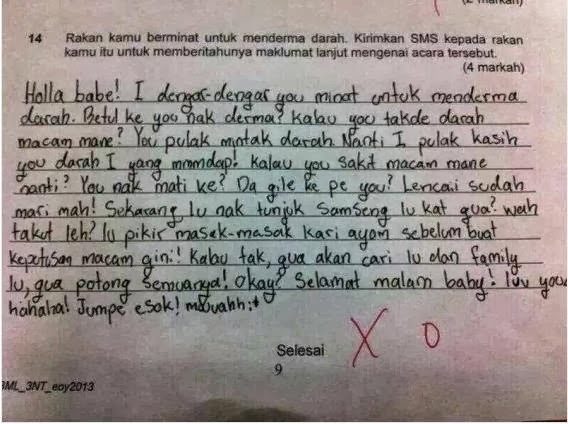 14 Rakan kamu berminat untuk menderma darah. Kirimkan SMS kepada rakan
kamu itu untuk memberitahunya maklumat lanjut mengenai acara tersebut.
(4 markah)
Holla babe! I dengar-dengar you minat untuk menderma
darah. Betul ke you nak derma? Kalau you takde darah
macam mane? You pulak mintak darah. Nanti I pulak kasih
you darah I yang mmmdap! Kalau you sakit macam mane
nanti? You nak mati ke? Da gile ke pe you? Lencai sudah
mari mah! Sekarang lu nak tunjuk Samseng lu kat gua? wah
takut leh? lu pikir masak-masak kari ayam sebelum buat
keputusan macam gini! Kalau tak, gua akan cari lu dan family
lu, gua potong semuanya! Okay? Selamat malam baby! luv you
hahaha! Jumpe esok! muuahh:*
X 0
Selesai
9
3NT_eoy2013